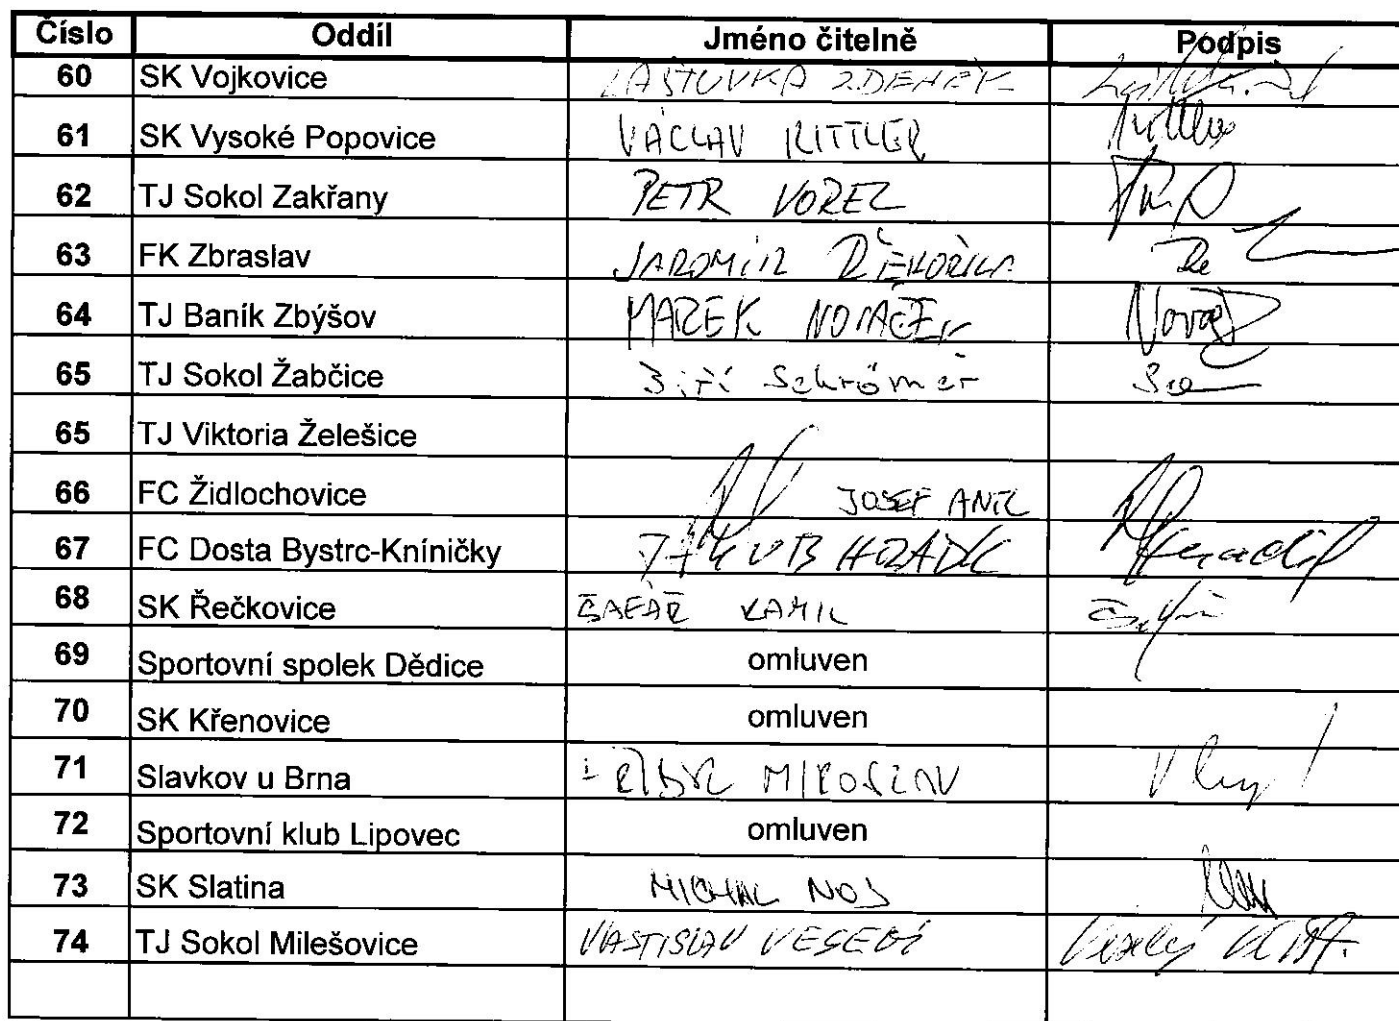 Číslo Oddíl Jméno čitelně Podpis
60 SK Vojkovice LAŠTUVKA ZDENĚK
61 SK Vysoké Popovice VÁCLAV RITTLER Rittler
62 TJ Sokol Zakřany PETR VOREL
63 FK Zbraslav JAROMÍR
64 TJ Baník Zbýšov MAREK NOVÁČEK
65 TJ Sokol Žabčice Jiří Schrömer
65 TJ Viktoria Želešice
66 FC Židlochovice JOSEF
67 FC Dosta Bystrc-Kníničky JAKUB HRADIL Hradil
68 SK Řečkovice ŠAFÁŘ KAMIL
69 Sportovní spolek Dědice omluven
70 SK Křenovice omluven
71 Slavkov u Brna MIROSLAV
72 Sportovní klub Lipovec omluven
73 SK Slatina MICHAL NOS
74 TJ Sokol Milešovice VLASTISLAV VESELÝ Veselý Vlast.